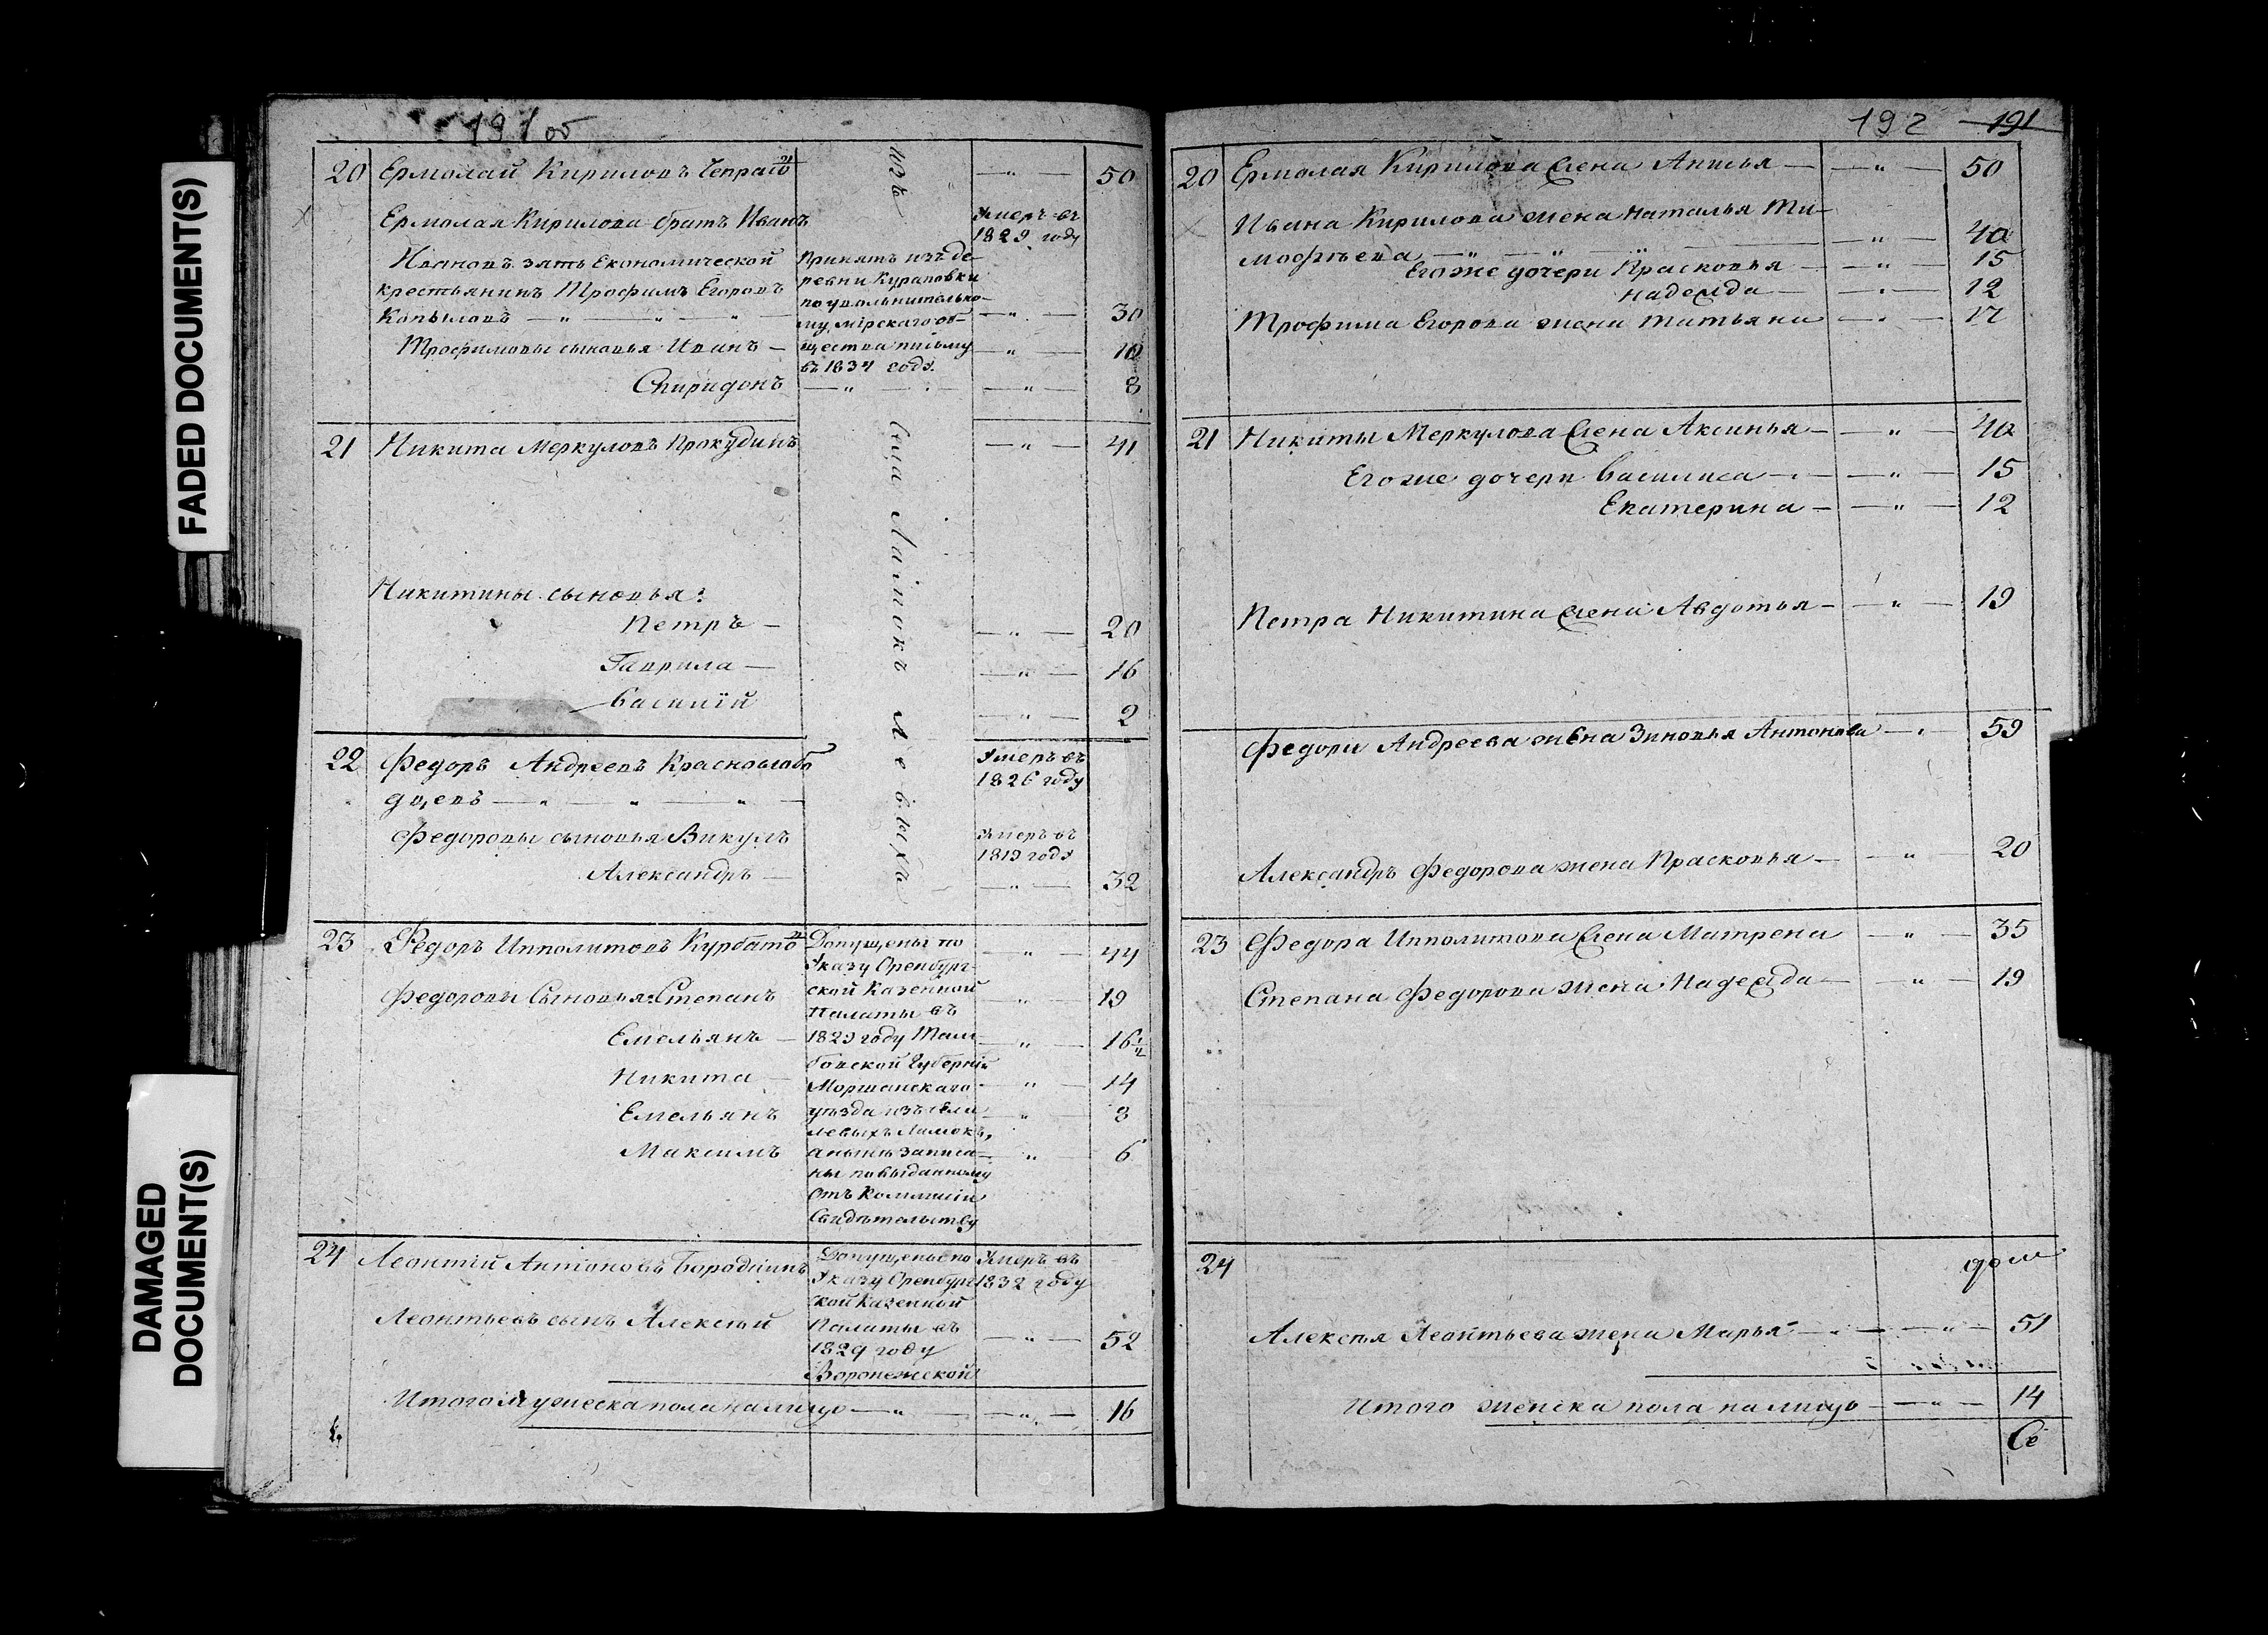 FADED DOCUMENT(S)
DAMAGED
DOCUMENT(S)
191 об
20 Ермолай Кириловъ Чепрасо — " — 50
Ермолая Кирилова братъ Иванъ Умеръ въ
1829 году
Ивановъ зять Економической
крестьянинъ Трофимъ Егоровъ
Копыловъ — " — " — " — " — 30
Принятъ изъ де-
ревни Кураповки
по увольнительно-
му мірскаго об-
щества письму
въ 1834 годэ
Трофимовы сыновья Иванъ — " — 10
Спиридонъ — " — " — 8
изъ Села Лаімокъ Левыхъ
21 Никита Меркуловъ Прокудинъ — " — 41
Никитины сыновья:
Петръ — " — 20
Гаврила — " — 16
Василій — " — 2
22 Федоръ Андреевъ Краснослабо
дцевъ — " — " — " —
Умеръ въ
1826 году
Федоровы сыновья Викулъ Умеръ въ
1819 годэ
Александръ — " — 32
23 Федоръ Ипполитовъ Курбато — " — 44
Федоровы Сыновья: Степанъ " — 19
Емельянъ — " — 16 1/2
Никита — " — 14
Емельянъ " — 8
Максимъ — " — 6
Допущены по
Указу Оренбург-
ской Казенной
Палаты въ
1829 году Там
бовской Губерніи
Моршанскаго
уѣзда изъ села
Левыхъ Ламокъ,
а нынѣ записа-
ны по выданному
отъ Коммисіи
Свидѣтельству
24 Леонтій Антоновъ Бородкинъ Умеръ въ
1832 году
Леонтьевъ сынъ Алексѣй — " — 52
Допущены по
Указу Оренбург
ской Казенной
Палаты въ
1829 году
Воронежской
Итого мужеска пола налицо — " — " — 16
192 191
20 Ермолая Кирилова Жена Анисья — " — 50
Ивана Кирилова жена Наталья Ти-
мофѣева — " — " — " — 40
Его же дочери Прасковья — " — 15
Надежда — " — 12
Трофима Егорова жена Татьяна — " — 17
21 Никиты Меркулова Жена Аксинья — " — 40
Его же дочери Василиса — " — 15
Екатерина — " — 12
Петра Никитина Жена Авдотья — " — 19
Федора Андреева жена Зиновья Антонова — " 59
Александръ Федорова жена Прасковья — " — 20
23 Федора Ипполитова Жена Матрена — " — 35
Степана Федорова жена Надежда — " — 19
24
Алексѣя Леонтьева жена Марья — " — 51
Итого женска пола налицо — " — 14